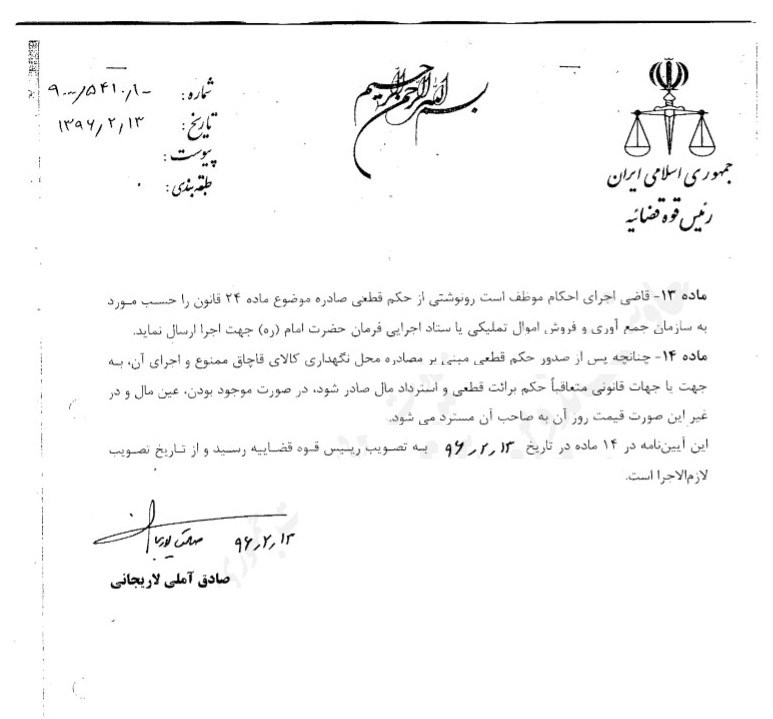 بسم الله الرحمن الرحیم
جمهوری اسلامی ایران
رئیس قوه قضائیه
شماره: ۹۰۰۰/۵۴۱۰/۱۰۰
تاریخ: ۱۳۹۶/۲/۱۳
پیوست:
طبقه‌بندی:
ماده ۱۳- قاضی اجرای احکام موظف است رونوشتی از حکم قطعی صادره موضوع ماده ۲۴ قانون را حسب مورد
به سازمان جمع آوری و فروش اموال تملیکی یا ستاد اجرایی فرمان حضرت امام (ره) جهت اجرا ارسال نماید.
ماده ۱۴- چنانچه پس از صدور حکم قطعی مبنی بر مصادره محل نگهداری کالای قاچاق ممنوع و اجرای آن، به
جهت یا جهات قانونی متعاقباً حکم برائت قطعی و استرداد مال صادر شود، در صورت موجود بودن، عین مال و در
غیر این صورت قیمت روز آن به صاحب آن مسترد می شود.
این آیین‌نامه در ۱۴ ماده در تاریخ ۹۶/۲/۱۳ به تصویب رییس قوه قضاییه رسید و از تاریخ تصویب
لازم‌الاجرا است.
۹۶/۲/۱۳
صادق آملی لاریجانی